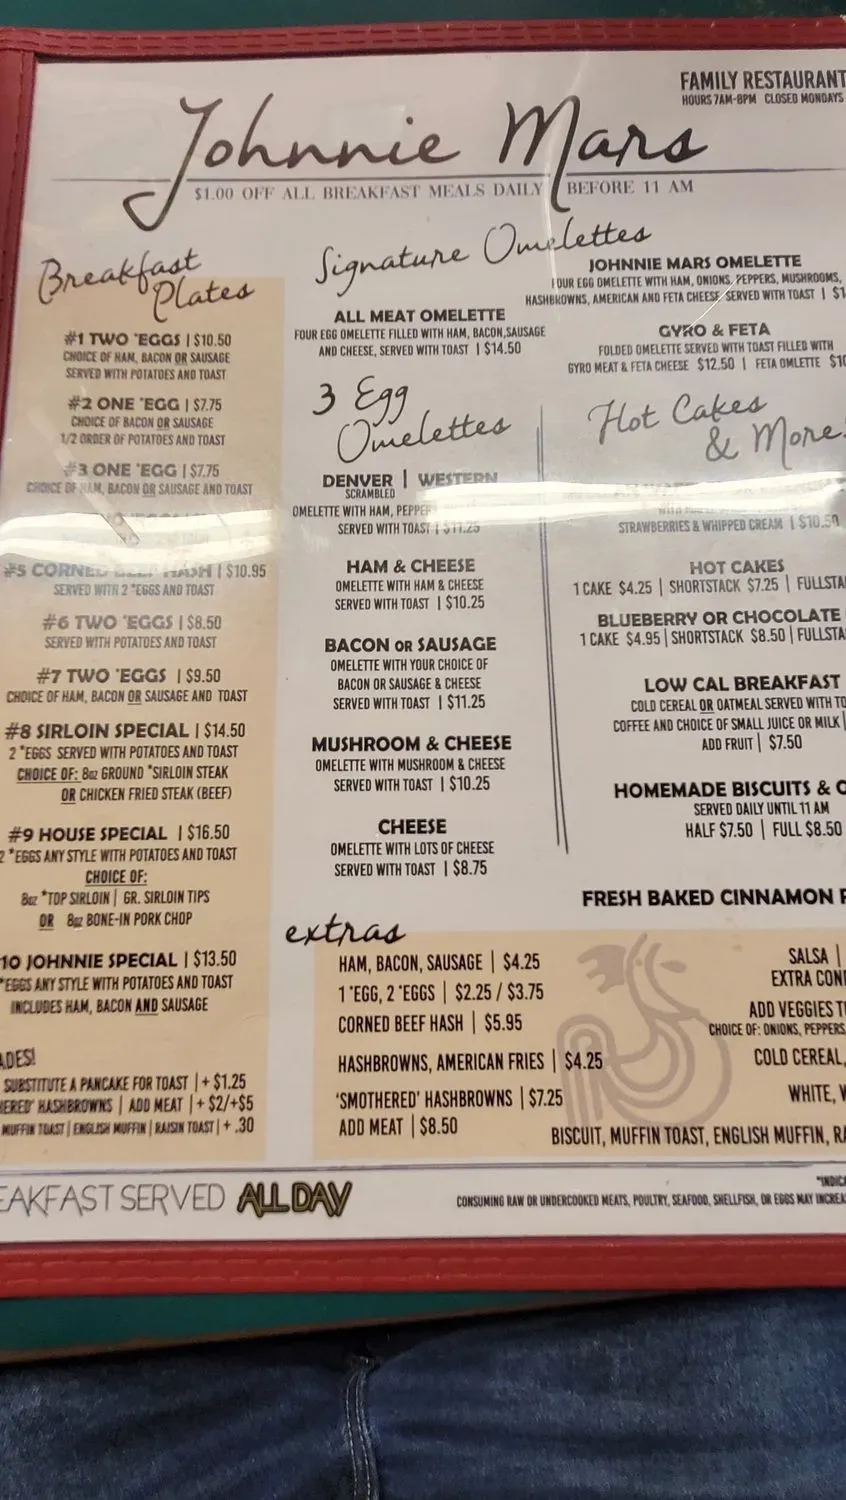 FAMILY RESTAURANT
HOURS 7AM-8PM CLOSED MONDAYS
Johnnie Mars
$1.00 OFF ALL BREAKFAST MEALS DAILY BEFORE 11 AM
Breakfast
Plates
#1 TWO *EGGS | $10.50
CHOICE OF HAM, BACON OR SAUSAGE
SERVED WITH POTATOES AND TOAST
#2 ONE *EGG | $7.75
CHOICE OF BACON OR SAUSAGE
1/2 ORDER OF POTATOES AND TOAST
#3 ONE *EGG | $7.75
CHOICE OF HAM, BACON OR SAUSAGE AND TOAST
#5 CORNED BEEF HASH | $10.95
SERVED WITH 2 *EGGS AND TOAST
#6 TWO *EGGS | $8.50
SERVED WITH POTATOES AND TOAST
#7 TWO *EGGS | $9.50
CHOICE OF HAM, BACON OR SAUSAGE AND TOAST
#8 SIRLOIN SPECIAL | $14.50
2 *EGGS SERVED WITH POTATOES AND TOAST
CHOICE OF: 8oz GROUND *SIRLOIN STEAK
OR CHICKEN FRIED STEAK (BEEF)
#9 HOUSE SPECIAL | $16.50
2 *EGGS ANY STYLE WITH POTATOES AND TOAST
CHOICE OF:
8oz *TOP SIRLOIN | GR. SIRLOIN TIPS
OR 8oz BONE-IN PORK CHOP
10 JOHNNIE SPECIAL | $13.50
*EGGS ANY STYLE WITH POTATOES AND TOAST
INCLUDES HAM, BACON AND SAUSAGE
ADES!
SUBSTITUTE A PANCAKE FOR TOAST | + $1.25
HERED' HASHBROWNS | ADD MEAT | + $2/+$5
MUFFIN TOAST | ENGLISH MUFFIN | RAISIN TOAST | + .30
Signature Omelettes
ALL MEAT OMELETTE
FOUR EGG OMELETTE FILLED WITH HAM, BACON,SAUSAGE
AND CHEESE, SERVED WITH TOAST | $14.50
JOHNNIE MARS OMELETTE
FOUR EGG OMELETTE WITH HAM, ONIONS, PEPPERS, MUSHROOMS,
HASHBROWNS, AMERICAN AND FETA CHEESE, SERVED WITH TOAST | $1
GYRO & FETA
FOLDED OMELETTE SERVED WITH TOAST FILLED WITH
GYRO MEAT & FETA CHEESE $12.50 | FETA OMLETTE $10
3 Egg
Omelettes
DENVER | WESTERN
SCRAMBLED
OMELETTE WITH HAM, PEPPER
SERVED WITH TOAST | $11.25
HAM & CHEESE
OMELETTE WITH HAM & CHEESE
SERVED WITH TOAST | $10.25
BACON OR SAUSAGE
OMELETTE WITH YOUR CHOICE OF
BACON OR SAUSAGE & CHEESE
SERVED WITH TOAST | $11.25
MUSHROOM & CHEESE
OMELETTE WITH MUSHROOM & CHEESE
SERVED WITH TOAST | $10.25
CHEESE
OMELETTE WITH LOTS OF CHEESE
SERVED WITH TOAST | $8.75
Hot Cakes
& More
STRAWBERRIES & WHIPPED CREAM | $10.50
HOT CAKES
1 CAKE $4.25 | SHORTSTACK $7.25 | FULLSTA
BLUEBERRY OR CHOCOLATE
1 CAKE $4.95 | SHORTSTACK $8.50 | FULLSTA
LOW CAL BREAKFAST
COLD CEREAL OR OATMEAL SERVED WITH TO
COFFEE AND CHOICE OF SMALL JUICE OR MILK |
ADD FRUIT | $7.50
HOMEMADE BISCUITS &
SERVED DAILY UNTIL 11 AM
HALF $7.50 | FULL $8.50
FRESH BAKED CINNAMON
extras
HAM, BACON, SAUSAGE | $4.25
1 *EGG, 2 *EGGS | $2.25 / $3.75
CORNED BEEF HASH | $5.95
HASHBROWNS, AMERICAN FRIES | $4.25
'SMOTHERED' HASHBROWNS | $7.25
ADD MEAT | $8.50
SALSA |
EXTRA CON
ADD VEGGIES T
CHOICE OF: ONIONS, PEPPERS,
COLD CEREAL,
WHITE, W
BISCUIT, MUFFIN TOAST, ENGLISH MUFFIN, RA
EAKFAST SERVED ALL DAY
*INDICA
CONSUMING RAW OR UNDERCOOKED MEATS, POULTRY, SEAFOOD, SHELLFISH, OR EGGS MAY INCREA